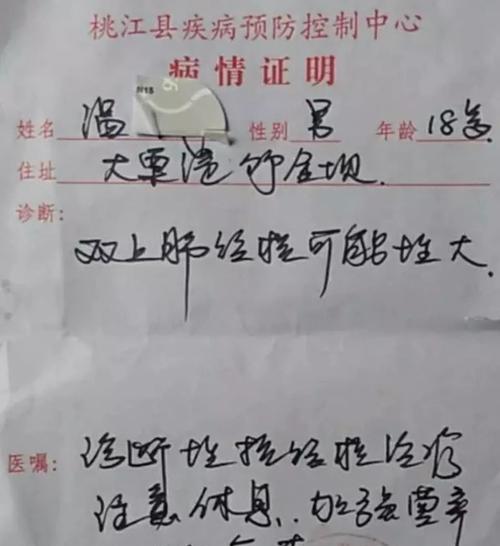 桃江县疾病预防控制中心
病情证明
姓名 温 性别 男 年龄 18岁
住址 大栗港 金坝.
诊断:
双上肺结核可能性大.
医嘱: 诊断性抗结核治疗
注意休息. 加强营养